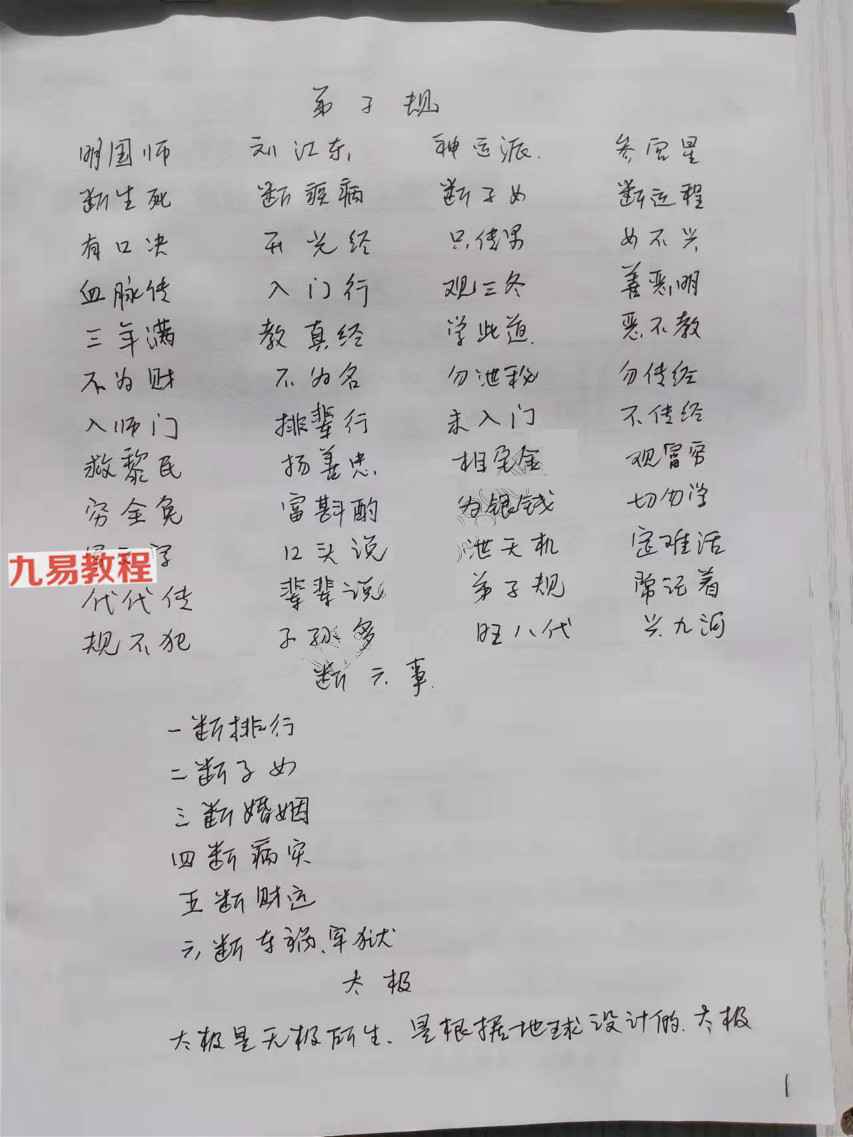 弟子规
明国师 刘江东 神运派. 参宫星
断生死 断疾病 断子女 断运程
有口决 开光经 只传男 女不兴
血脉传 入门行 观三冬 善恶明
三年满 教真经 学此道 恶不教
不为财 不为名 勿泄秘 勿传经
入师门 排辈行 未入门 不传经
救黎民 扬善忠 相宅金 观富穷
穷全免 富斟酌 为银钱 切勿学
字 口头说 泄天机 定难活
九易教程
代代传 辈辈说 弟子规 常记着
规不犯 子孙多 旺八代 兴九河
断六事.
一断排行
二断子女
三断婚姻
四断病灾
五断财运
六断车祸、牢狱
太极
太极是无极所生、是根据地球设计的.太极
1